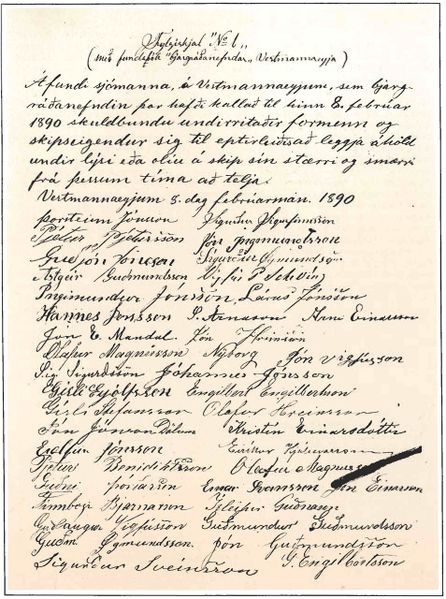 Fylgiskjal "No 1."
(með fundabók "Bjargráðanefndar" Vestmannaeyja)
Á fundi sjómanna, á Vestmannaeyjum, sem bjarg-
ráðanefndin þar hafði kallað til hinn 8. februar
1890 skuldbundu undirritaðir formenn og
skipseigendur sig til eptirleiðis að leggja áhöld
undir lýsi eða olíu á skip sín stærri og smærri
frá þessum tíma að telja.
Vestmannaeyjum 8. dag februármán. 1890
Þorsteinn Jónsson Sigurður Sigurfinnsson
Pjetur Pjetursson Jón Ingimundsson
Guðjón Jónsson Sigurður
Ástgeir Guðmundsson Vigfús P Schevíng
Ingimundur Jónsson, Lárus Jónsson
Hannes Jónsson S. Arnason Arni Einarsson
Jón E. Mandal. Jón Hreinsson
Ólafur Magnússon Nýborg Jón Vigfússon
Sig. Sigurðsson Jóhannes Jónsson
Gísli Eyjólfsson Engilbert Engilbertsson
Gísli Stefansson Olafur Hreinsson
Jón Jónsson Dölum Kristín Einarsdóttir
Erlendur Jónsson Einar
Pjetur Benidiktsson Ólafur Magnússon
Guðni Þórðarson Einar Sveinsson Jón Einarsson
Finnbogi Bjarnason Þ Guðnason
Guðlaugur Vigfússon Guðmundur Guðmundsson
Guðm. Ögmundsson. Jón Guðmundsson
Sigurður Sveinsson G. Engilbertsson